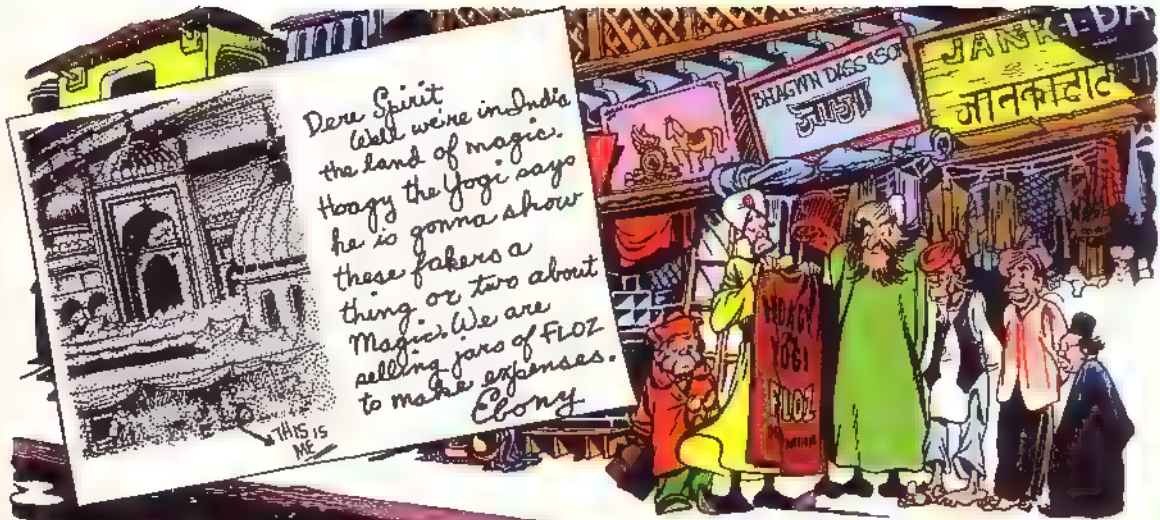 Dere Spirit
Well we're in India
the land of magic.
Hoagy the Yogi says
he is gonna show
these fakers a
thing or two about
Magic. We are
selling jars of FLOZ
to make expenses.
Ebony
THIS IS
ME
BHAGWN DASS & SON
JANKI-DA
जानकाटाट
HOAGY
YOGI
FLOZ